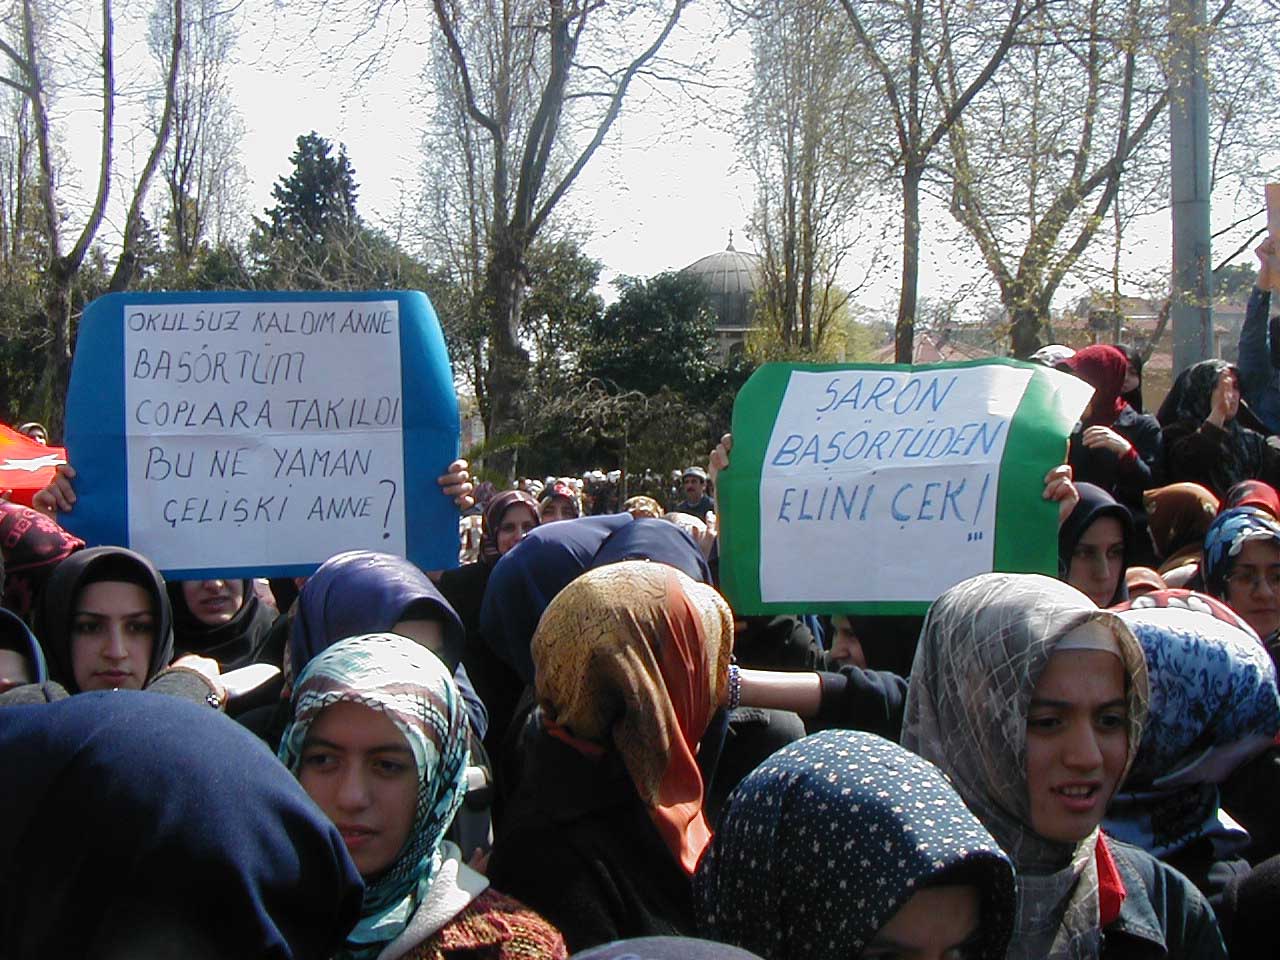 OKULSUZ KALDIM ANNE
BAŞÖRTÜM
COPLARA TAKILDI
BU NE YAMAN
ÇELIŞKI ANNE?
ŞARON
BAŞÖRTÜDEN
ELINI ÇEK!...